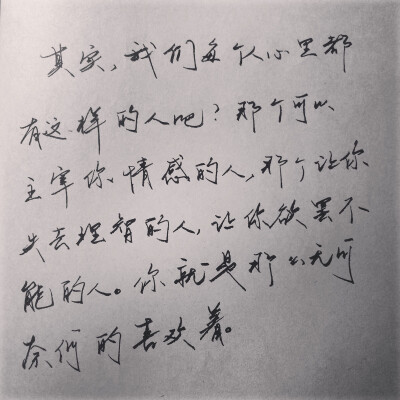 其实,我们每个人心里都
有这样的人吧?那个可以
主宰你情感的人,那个让你
失去理智的人,让你欲罢不
能的人。你就是那么无可
奈何的喜欢着。